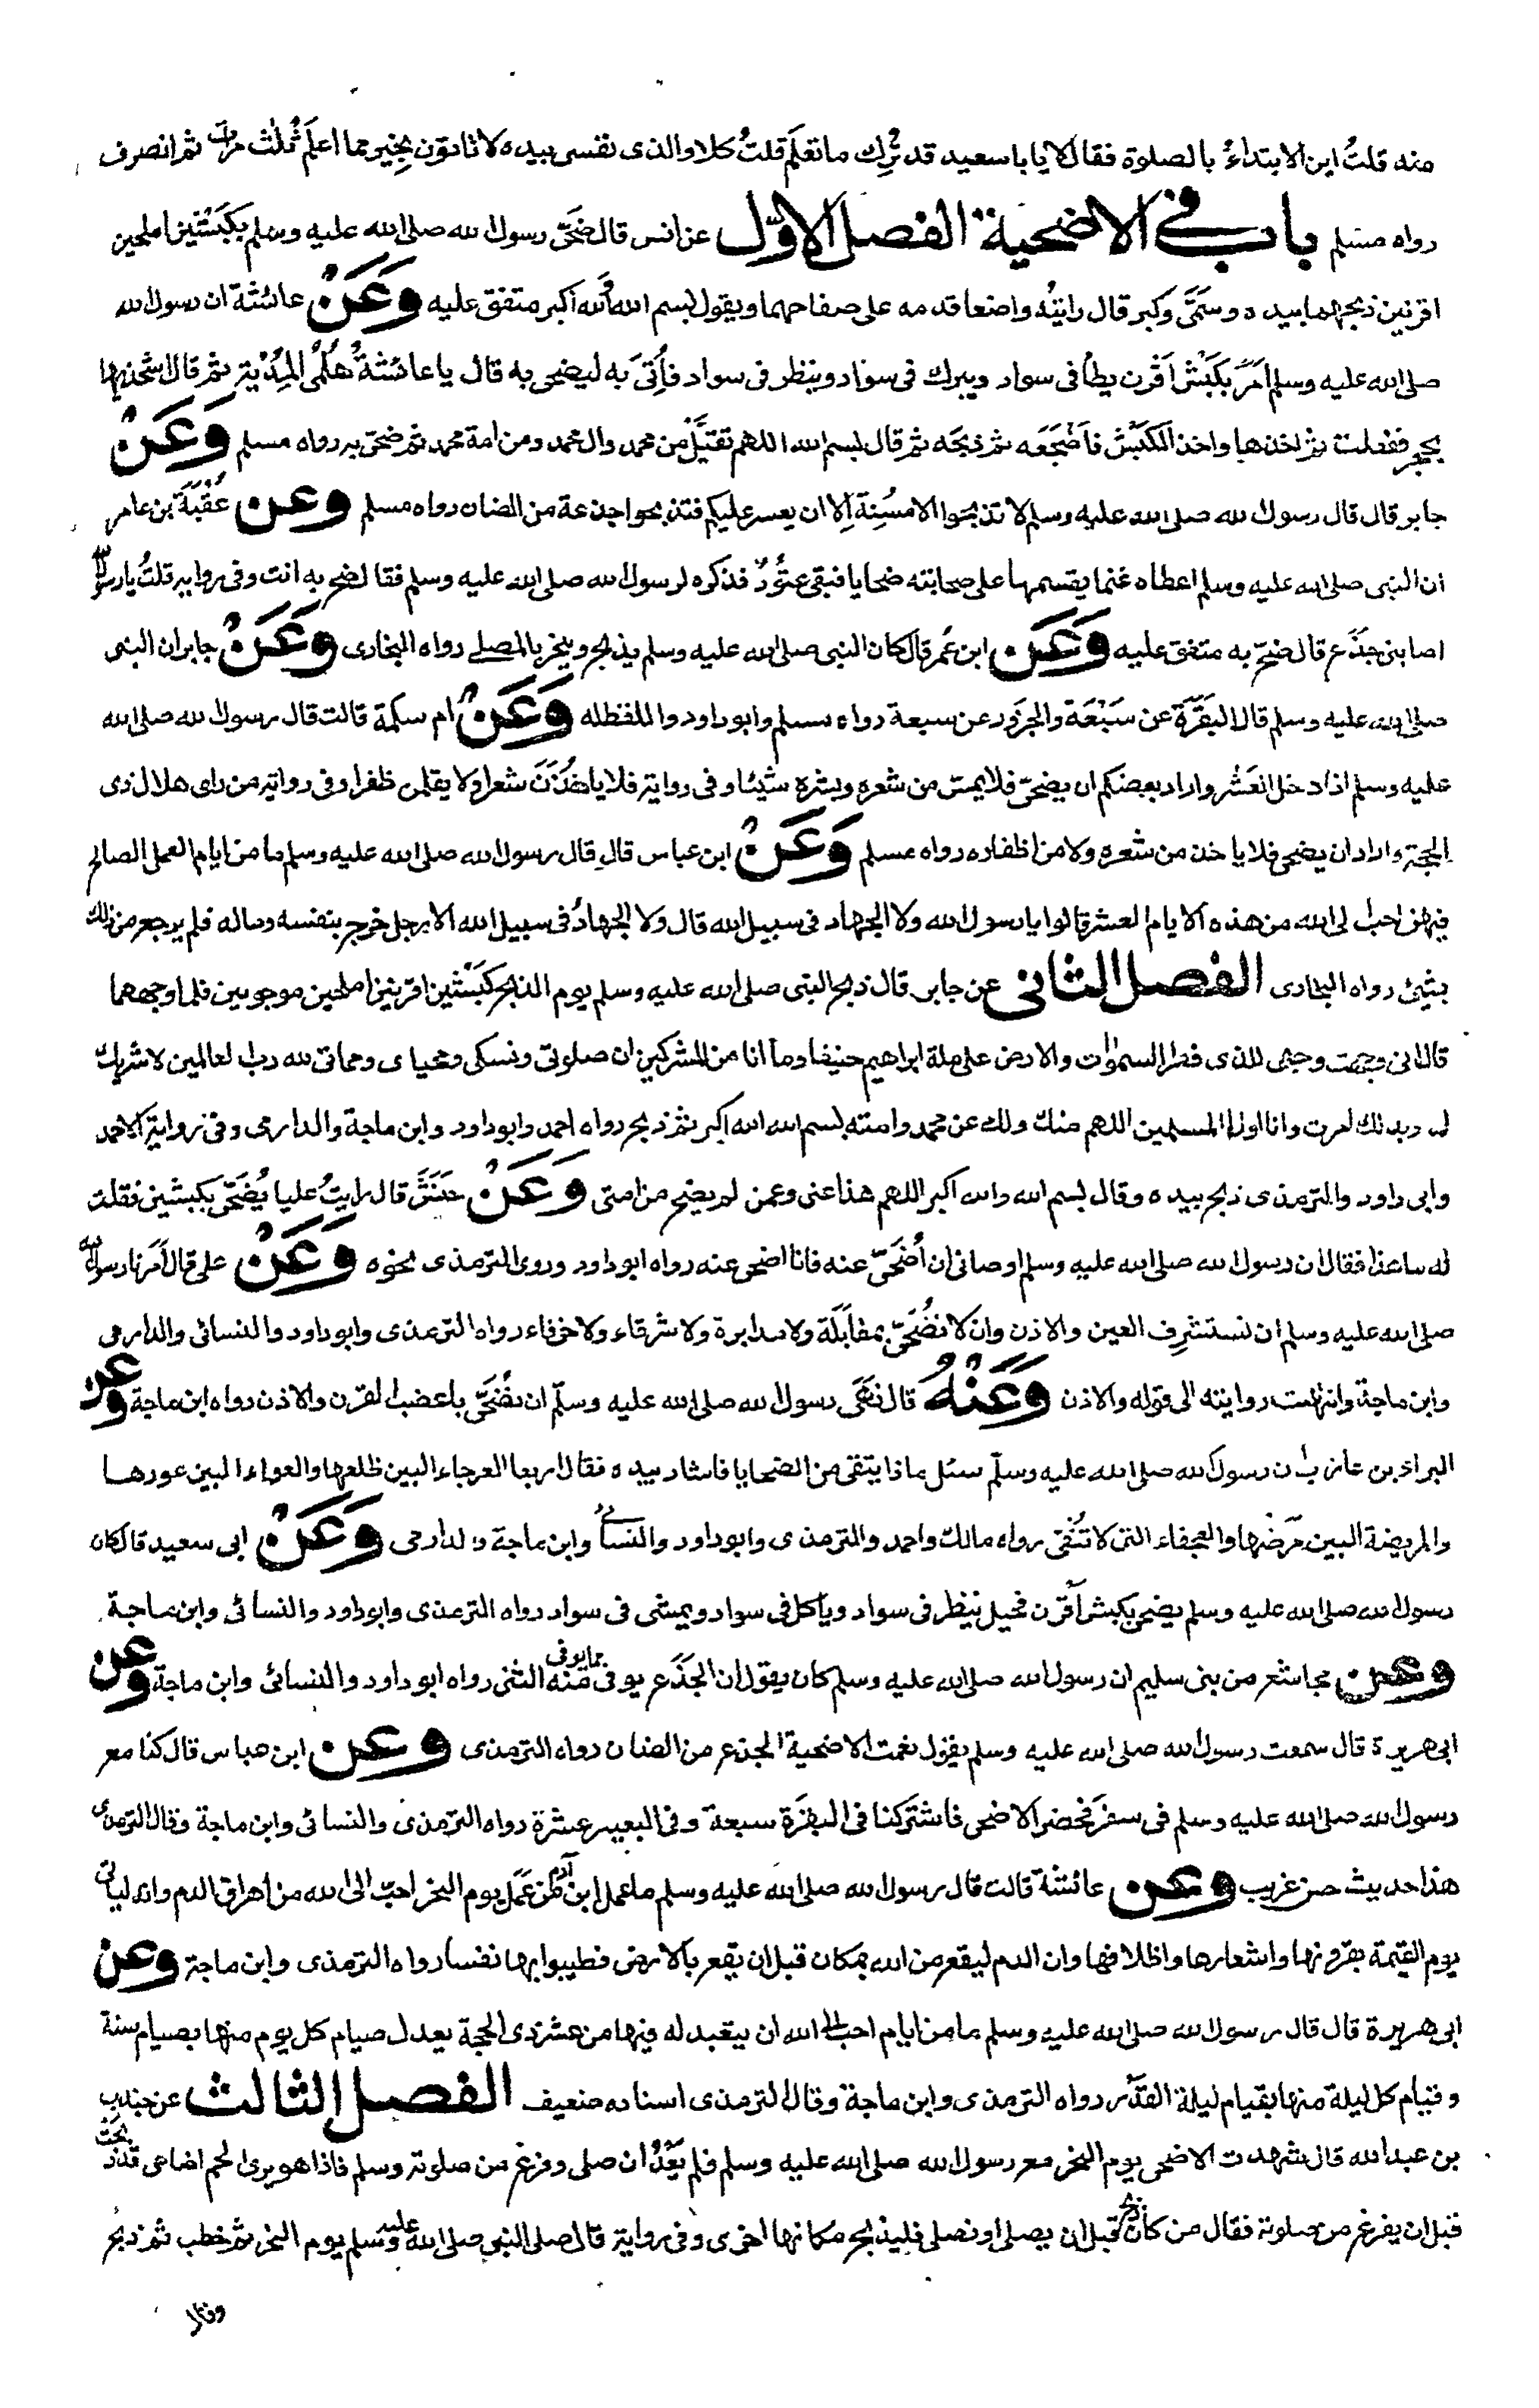 منه قلتُ اين الابتداءُ بالصلوة فقال لا يا باسعيد قد تُرِك ما تعلَم قلتُ كلا والذى نفسى بيده لا تاتون بخيرٍ مما اعلَم ثلٰث مراتٍ ثم انصرف
رواه مسلم باب فى الاضحية الفصل الاوّل عن انس قال ضَحّى رسول الله صلى الله عليه وسلم بكَبشَيْن املحين
اقرنين ذبحهما بيده وسَمّٰى وكبر قال رايتُه واضعا قدمه على صفاحهما ويقول بسم الله والله اكبر متفق عليه وَعَنْ عائشة ان رسول الله
صلى الله عليه وسلم امَرَ بكَبْش اَقْرن يطأ فى سواد ويبرك فى سواد وينظر فى سواد فاُتى به ليضحى به قال يا عائشةُ هَلُمِّى المُدْيَة ثم قال اشحذيها
بحجر ففعلت ثم اخذها واخذ الكَبْش فاَضْجَعَه ثم ذبحَه ثم قال بسم الله اللهم تقبَّل من محمد وال محمد ومن امة محمد ثم ضحّى به رواه مسلم وَعَنْ
جابر قال قال رسول الله صلى الله عليه وسلم لا تذبحوا الا مُسِنة الا ان يعسر عليكم فتذبحوا جذعة من الضان رواه مسلم وعن عُقْبَةَ بن عامر
ان النبى صلى الله عليه وسلم اعطاه غنما يقسمها على صحابته ضحايا فبقى عتُودٌ فذكره لرسول الله صلى الله عليه وسلم فقال ضح به انت وفى رواية قلتُ يا رسول الله
اصابنى جَذَع قال ضحّ به متفق عليه وَعَن ابن عُمر قال كان النبى صلى الله عليه وسلم يذبح وينحر بالمصلے رواه البخارى وَعَنْ جابر ان النبى
صلى الله عليه وسلم قال البَقَرَة عن سَبْعَة والجزور عن سبعة رواه مسلم وابو داود واللفظ له وَعَنْ ام سلمة قالت قال رسول الله صلى الله
عليه وسلم اذا دخل العَشْر واراد بعضكم ان يضحىّ فلا يمسّ من شعره وبشره شيئا وفى رواية فلا ياخُذَنَّ شعرا ولا يقلمن ظفرا وفى رواية من راى هلال ذى
الحجة واراد ان يضحى فلا ياخذ من شعره ولا من اظفاره رواه مسلم وَعَنْ ابن عباس قال قال رسول الله صلى الله عليه وسلم ما من ايام العمل الصالح
فيهن احبُّ الى الله من هذه الايام العشر قالوا يا رسول الله ولا الجهاد فى سبيل الله قال ولا الجهادُ فى سبيل الله الا رجل خرج بنفسه وماله فلم يرجع من ذلك
بشئ رواه البخارى الفصل الثانى عن جابر قال ذبح النبى صلى الله عليه وسلم يوم الذبح كَبْشين اقرنين املحين موجوين فلما وجههما
قال انى وجهت وجهى للذى فطر السمٰوات والارض على ملة ابراهيم حنيفا وما انا من المشركين ان صلوتى ونسكى ومحياى ومماتى لله رب العالمين لا شريك
له وبذلك امرت وانا اول المسلمين اللهم منك ولك عن محمد وامته بسم الله الله اكبر ثم ذبح رواه احمد وابو داود وابن ماجة والدارمى وفى رواية لاحمد
وابى داود والترمذى ذبح بيده وقال بسم الله والله اكبر اللهم هذا عنى وعمن لم يضح من امتى وَعَنْ حَنَشٍ قال رايتُ عليا يُضَحّى بكبشين فقلت
له ما هذا فقال ان رسول الله صلى الله عليه وسلم اوصانى ان اُضَحّىَ عنه فانا اضحى عنه رواه ابو داود وروى الترمذى نحوه وَعَنْ على قال اَمَرنا رسول الله
صلى الله عليه وسلم ان نستشرِف العين والاذن وان لا نُضَحّىَ بمقابَلَة ولا مدابرة ولا شرقاء ولا خرقاء رواه الترمذى وابو داود والنسائى والدارمى
وابن ماجة وانتهت روايته الى قوله والاذن وَعَنْهُ قال نَهَى رسول الله صلى الله عليه وسلّم ان نضَحّى باعضب القرن والاذن رواه ابن ماجة وعن
البراء بن عازب ان رسول الله صلى الله عليه وسلّم سئل ماذا يتقى من الضحايا فاشار بيده فقال اربعا العرجاء البين ظلعها والعوراء البين عورها
والمريضة البين مَرَضُها والعجفاء التى لا تُنْقى رواه مالك واحمد والترمذى وابو داود والنسائى وابن ماجة والدارمى وَعَنْ ابى سعيد قال كان
رسول الله صلى الله عليه وسلم يضحى بكبش اَقرن فحيل ينظر فى سواد وياكل فى سواد ويمشى فى سواد رواه الترمذى وابو داود والنسائى وابن ماجة
وعن مجاشع من بنى سليم ان رسول الله صلى الله عليه وسلم كان يقول ان الجَذَع يوفى مما يوفى منه الثنى رواه ابو داود والنسائى وابن ماجة وعن
ابى هريرة قال سمعت رسول الله صلى الله عليه وسلم يقول نعمت الاضحية الجذع من الضان رواه الترمذى وعن ابن عباس قال كنا مع
رسول الله صلى الله عليه وسلم فى سفر فحضر الاضحى فاشتركنا فى البقرَة سبعة وفى البعير عشرة رواه الترمذى والنسائى وابن ماجة وقال الترمذى
هذا حديث حسن غريب وعن عائشة قالت قال رسول الله صلى الله عليه وسلم ما عمل ابن اٰدم من عَمَل يوم النحر احبّ الى الله من اهراق الدم وانه لياتى
يوم القيمة بقرونها واشعارها واظلافها وان الدم ليقع من الله بمكان قبل ان يقع بالارض فطيبوا بها نفسا رواه الترمذى وابن ماجة وعن
ابى هريرة قال قال رسول الله صلى الله عليه وسلم ما من ايام احب الى الله ان يتعبد له فيها من عشر ذى الحجة يعدل صيام كل يوم منها بصيام سنة
وقيام كل ليلة منها بقيام ليلة القدْر رواه الترمذى وابن ماجة وقال الترمذى اسناده ضعيف الفصل الثالث عن جندب
بن عبد الله قال شهدت الاضحى يوم النحر مع رسول الله صلى الله عليه وسلم فلم يَعْدُ ان صلى وفرغ من صلوته وسلم فاذا هو يرى لحم اضاحى قد ذبحت
قبل ان يفرغ من صلوته فقال من كان ذبح قبل ان يصلى او نصلى فليذبح مكانها اخرى وفى رواية قال صلى النبى صلى الله عليه وسلم يوم النحر ثم خطب ثم ذبح
وقال